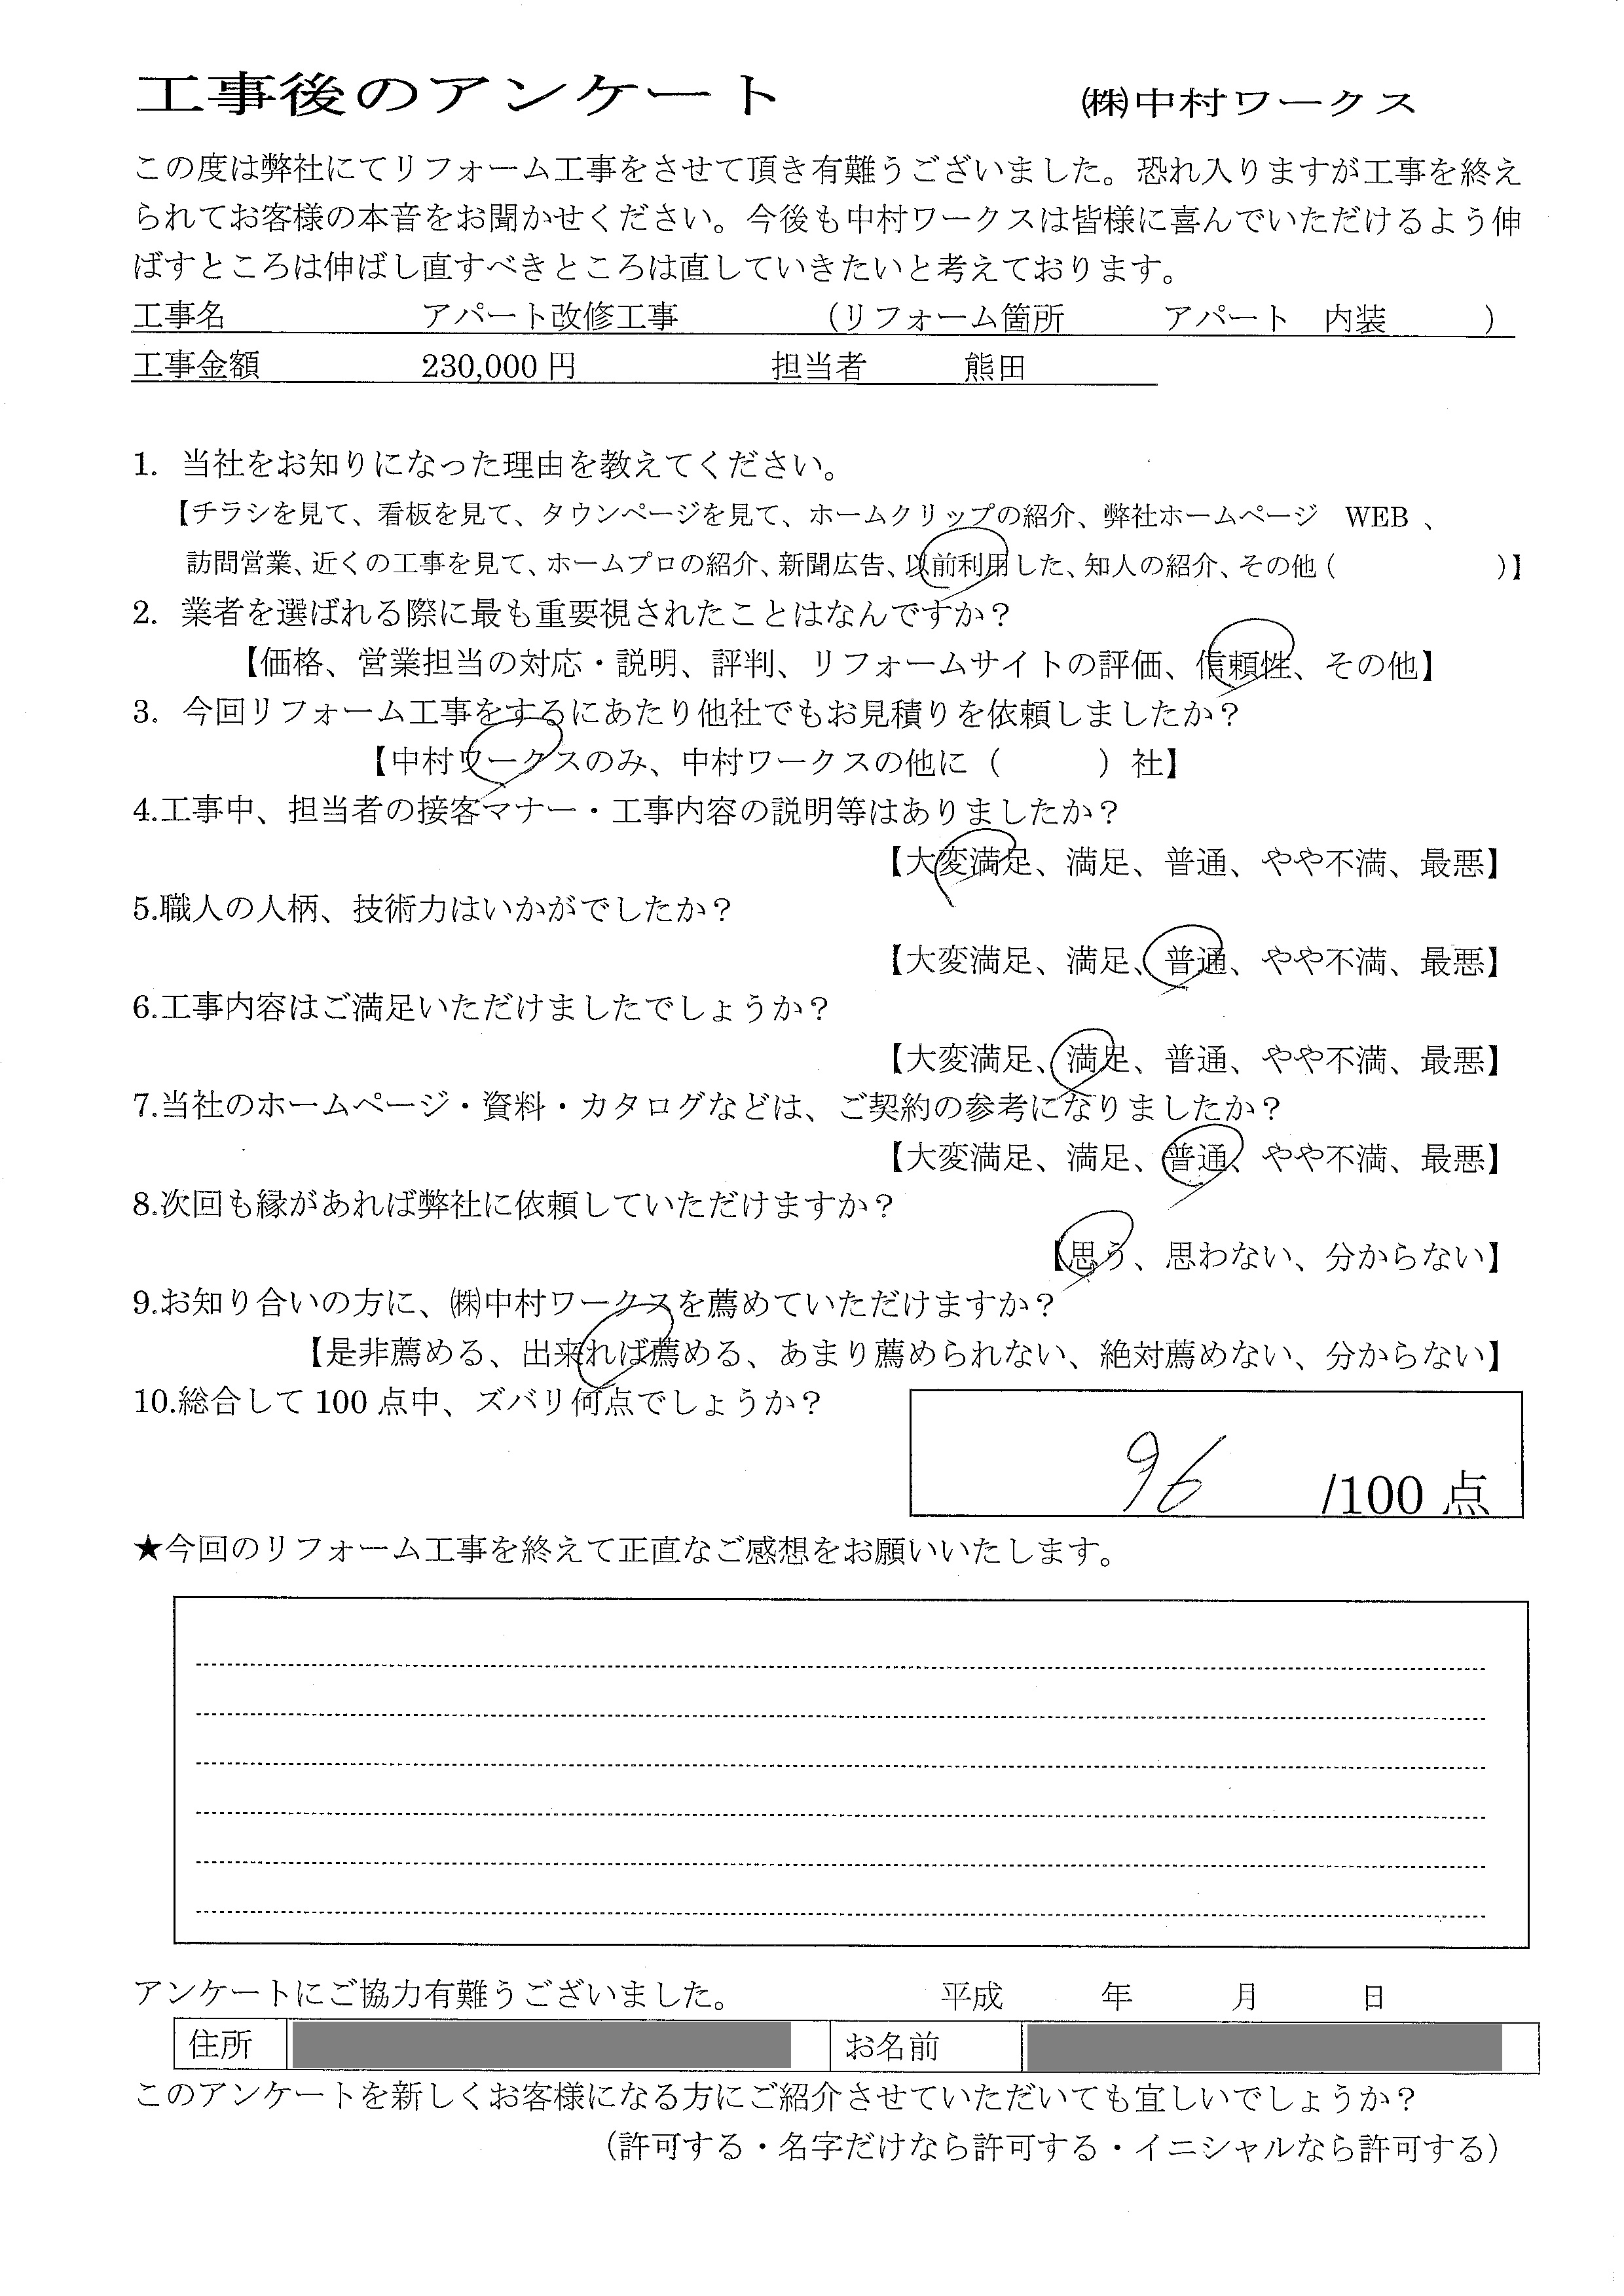 工事後のアンケート ㈱中村ワークス
この度は弊社にてリフォーム工事をさせて頂き有難うございました。恐れ入りますが工事を終え
られてお客様の本音をお聞かせください。今後も中村ワークスは皆様に喜んでいただけるよう伸
ばすところは伸ばし直すべきところは直していきたいと考えております。
工事名 アパート改修工事 （リフォーム箇所 アパート 内装 ）
工事金額 230,000 円 担当者 熊田
1. 当社をお知りになった理由を教えてください。
【チラシを見て、看板を見て、タウンページを見て、ホームクリップの紹介、弊社ホームページ WEB 、
訪問営業、近くの工事を見て、ホームプロの紹介、新聞広告、以前利用した、知人の紹介、その他（ ）】
2. 業者を選ばれる際に最も重要視されたことはなんですか？
【価格、営業担当の対応・説明、評判、リフォームサイトの評価、信頼性、その他】
3. 今回リフォーム工事をするにあたり他社でもお見積りを依頼しましたか？
【中村ワークスのみ、中村ワークスの他に（ ）社】
4.工事中、担当者の接客マナー・工事内容の説明等はありましたか？
【大変満足、満足、普通、やや不満、最悪】
5.職人の人柄、技術力はいかがでしたか？
【大変満足、満足、普通、やや不満、最悪】
6.工事内容はご満足いただけましたでしょうか？
【大変満足、満足、普通、やや不満、最悪】
7.当社のホームページ・資料・カタログなどは、ご契約の参考になりましたか？
【大変満足、満足、普通、やや不満、最悪】
8.次回も縁があれば弊社に依頼していただけますか？
【思う、思わない、分からない】
9.お知り合いの方に、㈱中村ワークスを薦めていただけますか？
【是非薦める、出来れば薦める、あまり薦められない、絶対薦めない、分からない】
10.総合して 100 点中、ズバリ何点でしょうか？
96 /100 点
★今回のリフォーム工事を終えて正直なご感想をお願いいたします。
アンケートにご協力有難うございました。 平成 年 月 日
住所 お名前
このアンケートを新しくお客様になる方にご紹介させていただいても宜しいでしょうか？
（許可する・名字だけなら許可する・イニシャルなら許可する）